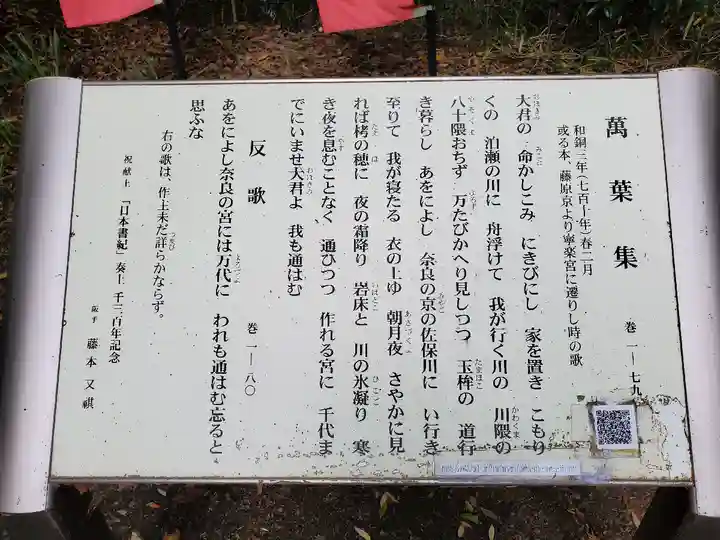 萬葉集
巻一―七九
和銅三年(七百十年)春二月
或る本、藤原京より寧楽宮に遷りし時の歌
大君の 命かしこみ にきびにし 家を置き こもり
くの 泊瀬の川に 舟浮けて 我が行く川の 川隈の
八十隈おちず 万たびかへり見しつつ 玉桙の 道行
き暮らし あをによし 奈良の京の佐保川に い行き
至りて 我が寝たる 衣の上ゆ 朝月夜 さやかに見
れば栲の穂に 夜の霜降り 岩床と 川の氷凝り 寒
き夜を息むことなく 通ひつつ 作れる宮に 千代ま
でにいませ大君よ 我も通はむ
反歌
巻一―八〇
あをによし奈良の宮には万代に われも通はむ忘ると
思ふな
右の歌は、作主未だ詳らかならず。
祝献上 「日本書紀」奏上 千三百年記念
阪手 藤本又祺